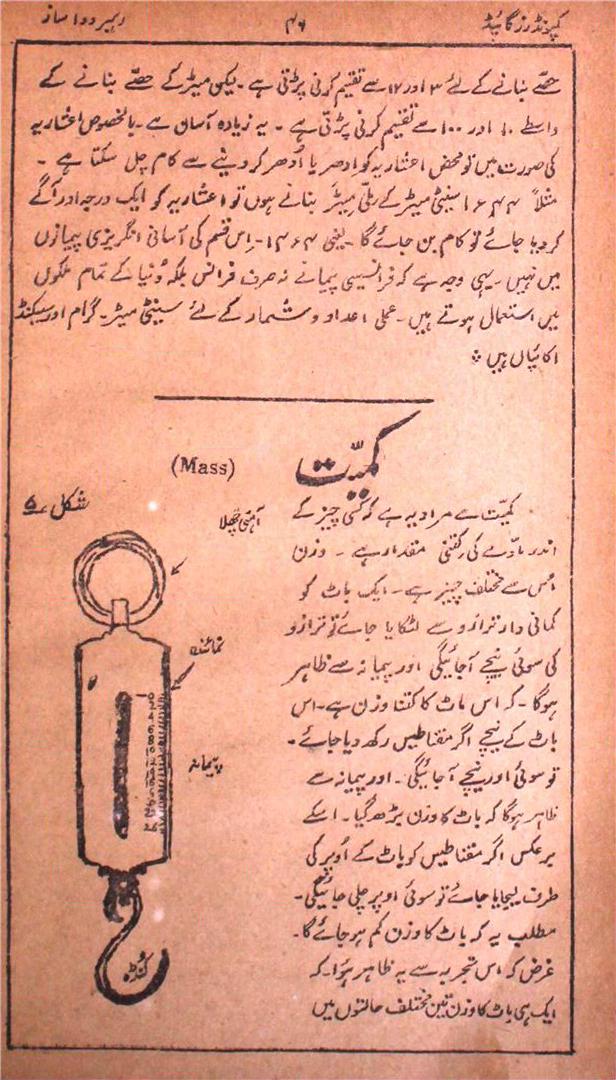 کمپونڈرز گائیڈ ۴۶ رہبر دوا ساز
حصّے بنانے کے لئے ۳ اور ۱۲ سے تقسیم کرنی پڑتی ہے ۔ لیکن میٹر کے حصّے بنانے کے
واسطے ۱۰ اور ۱۰۰ سے تقسیم کرنی پڑتی ہے ۔ یہ زیادہ آسان ہے ۔ بالخصوص اعشاریہ
کی صورت میں تو محض اعشاریہ کو ادھر یا اُدھر کر دینے سے کام چل سکتا ہے ۔
مثلاً سینٹی میٹر کے ملّی میٹر بنانے ہوں تو اعشاریہ کو ایک درجہ اور آگے
کر دیا جائے تو کام بن جائے گا ۔ یعنی ۔ اِس قسم کی آسانی انگریزی پیمانوں
میں نہیں ۔ یہی وجہ ہے کہ فرانسیسی پیمانے نہ صرف فرانس بلکہ دُنیا کے تمام ملکوں
میں استعمال ہوتے ہیں ۔ عملی اعداد و شمار کے لئے سینٹی میٹر ۔ گرام اور سیکنڈ
اکائیاں ہیں ٭
کمیّت (Mass)
کمیّت سے مراد یہ ہے کہ کسی چیز کے
اندر مادّے کی کتنی مقدار ہے ۔ وزن
اُس سے مختلف چیز ہے ۔ ایک باٹ کو
کمانی دار ترازو سے لٹکایا جائے تو ترازو
کی سوئی نیچے آجائیگی اور پیمانہ سے ظاہر
ہوگا ۔ کہ اس باٹ کا کتنا وزن ہے ۔ اس
باٹ کے نیچے اگر مقناطیس رکھ دیا جائے ۔
تو سوئی اور نیچے آ جائیگی ۔ اور پیمانہ سے
ظاہر ہوگا کہ باٹ کا وزن بڑھ گیا ۔ اسکے
برعکس اگر مقناطیس کو باٹ کے اُوپر کی
طرف لیجایا جائے تو سوئی اوپر چلی جائیگی ۔
مطلب یہ کہ باٹ کا وزن کم ہو جائے گا ۔
غرض کہ اس تجربہ سے یہ ظاہر ہوا ۔ کہ
ایک ہی باٹ کا وزن تین مختلف حالتوں میں
شکل ۵
آہنی چھلا
نمائندہ
پیمانہ
کُنڈہ